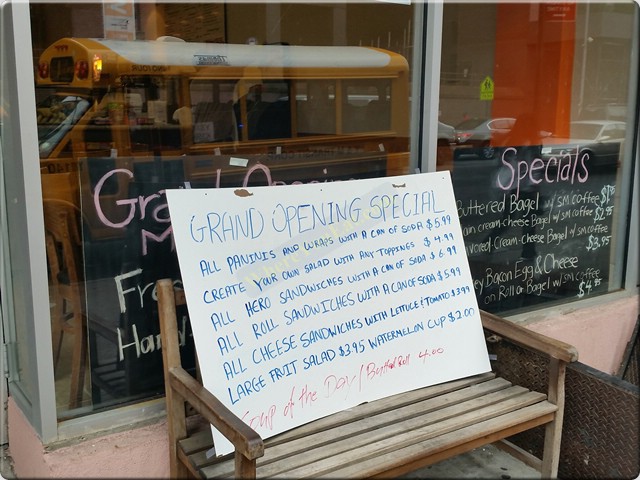 Gra
M
Fr
Hand
GRAND OPENING SPECIAL
ALL PANINIS AND WRAPS WITH A CAN OF SODA $5.99
CREATE YOUR OWN SALAD WITH ANY TOPPINGS $4.99
ALL HERO SANDWICHES WITH A CAN OF SODA $6.99
ALL ROLL SANDWICHES WITH A CAN OF SODA $5.99
ALL CHEESE SANDWICHES WITH LETTUCE & TOMATO $3.99
LARGE FRUIT SALAD $3.95 WATERMELON CUP $2.00
Soup of the Day / Butted Roll 4.00
Specials
Buttered Bagel w/ sm coffee
ain cream-cheese Bagel w/ sm coffee $2.95
avored-Cream-cheese Bagel w/ sm coffee
$3.95
ey Bacon Egg & Cheese
on Roll or Bagel w/ sm coffee
$4.95